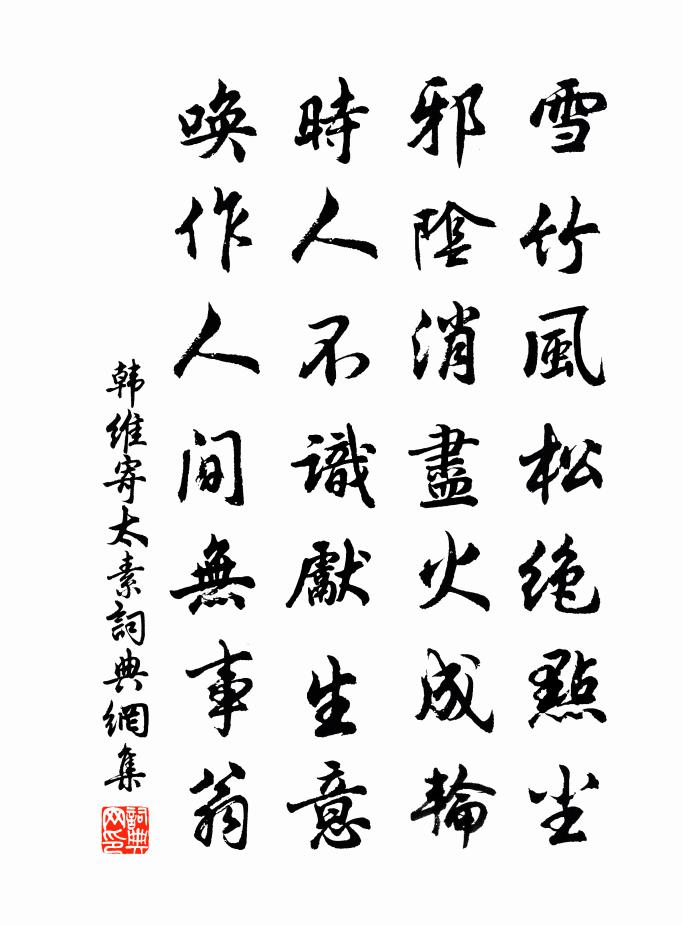 雪竹風松絶點尘
邪陰消盡火成輪
時人不識獻生意
喚作人間無事翁
韩維寄太素詞典網集
詞典网印